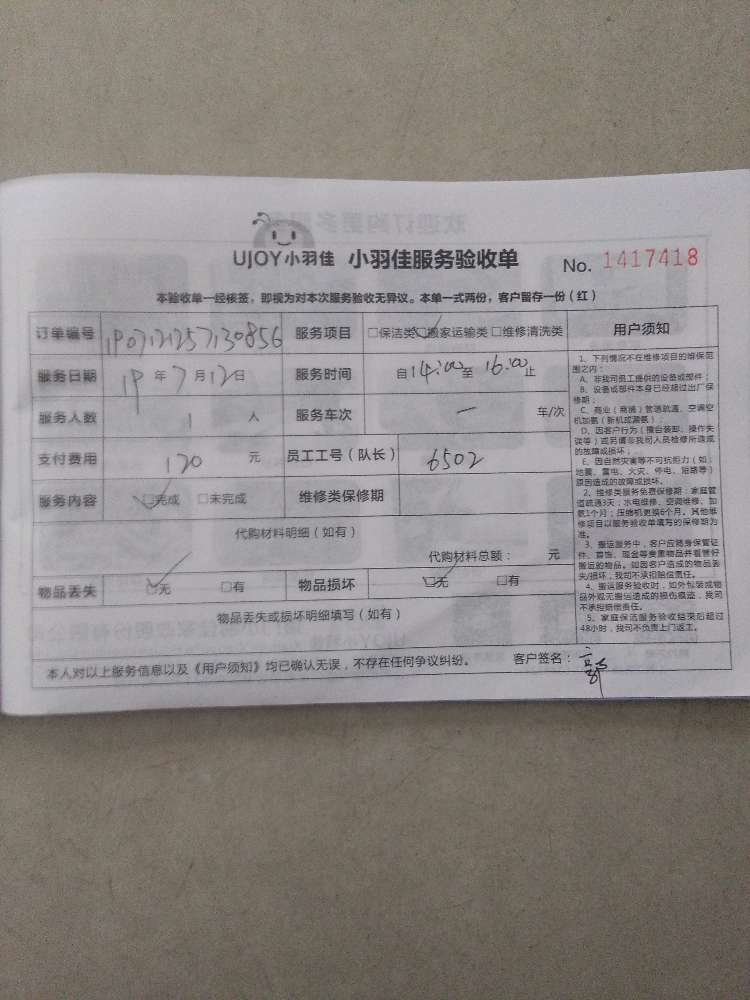 UJOY小羽佳 小羽佳服务验收单 No. 1417418
本验收单一经核签，即视为对本次服务验收无异议。本单一式两份，客户留存一份（红）
订单编号 1907121257130856 服务项目 □保洁类 □搬家运输类 □维修清洗类
服务日期 19 年 7 月 12 日 服务时间 自 14:00 至 16:00 止
服务人数 1 人 服务车次 一 车/次
支付费用 120 元 员工工号（队长） 6502
服务内容 □完成 □未完成 维修类保修期
代购材料明细（如有）
代购材料总额： 元
物品丢失 □无 □有 物品损坏 □无 □有
物品丢失或损坏明细填写（如有）
本人对以上服务信息以及《用户须知》均已确认无误，不存在任何争议纠纷。 客户签名：
用户须知
1、下列情况不在维修项目的维保范
围之内：
A、非我司员工提供的设备或部件；
B、设备或部件本身已经超过出厂保
修期；
C、商业（商铺）管道疏通、空调空
机加氨（新机或漏氨）
D、因客户行为（擅自装卸、操作失
误等）或另请非我司人员检修所造成
的故障或损坏；
E、因自然灾害等不可抗拒力（如：
地震、雷电、火灾、停电、短路等）
原因造成的故障或损坏。
2、维修类服务免费保修期：家庭管
道疏通3天；水电维修、空调维修、加
氨1个月；压缩机更换6个月。其他维
修项目以服务验收单填写的保修期为
准。
3、搬运服务中，客户应随身保管证
件、首饰、现金等贵重物品并看管好
搬运的物品。如因客户造成的物品丢
失/损坏，我司不承担赔偿责任。
4、搬运服务验收时，如外包装或物
品外观无搬运造成的损伤痕迹，我司
不承担赔偿责任。
5、家庭保洁服务验收结束后超过
48小时，我司不负责上门返工。